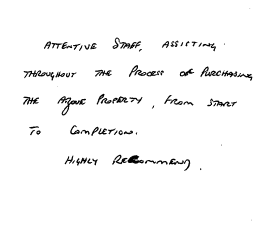 ATTENTIVE STAFF, ASSISTING
THROUGHOUT THE PROCESS OF PURCHASING
THE ABOVE PROPERTY, FROM START
TO COMPLETION.
HIGHLY RECOMMEND.